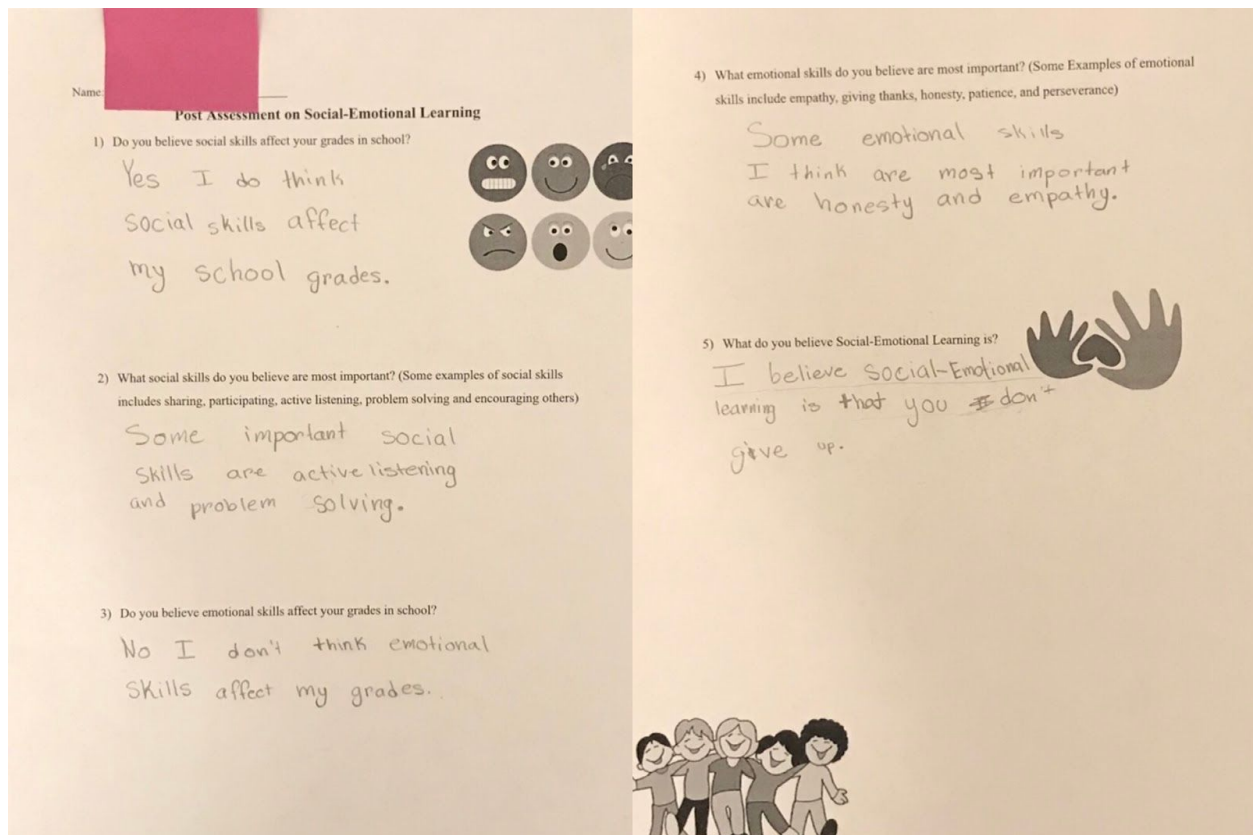 Name:
Post Assessment on Social-Emotional Learning
1) Do you believe social skills affect your grades in school?
Yes I do think
social skills affect
my school grades.
2) What social skills do you believe are most important? (Some examples of social skills
includes sharing, participating, active listening, problem solving and encouraging others)
Some important social
skills are active listening
and problem solving.
3) Do you believe emotional skills affect your grades in school?
No I don't think emotional
skills affect my grades.
4) What emotional skills do you believe are most important? (Some Examples of emotional
skills include empathy, giving thanks, honesty, patience, and perseverance)
Some emotional skills
I think are most important
are honesty and empathy.
5) What do you believe Social-Emotional Learning is?
I believe social-Emotional
learning is that you don't
give up.